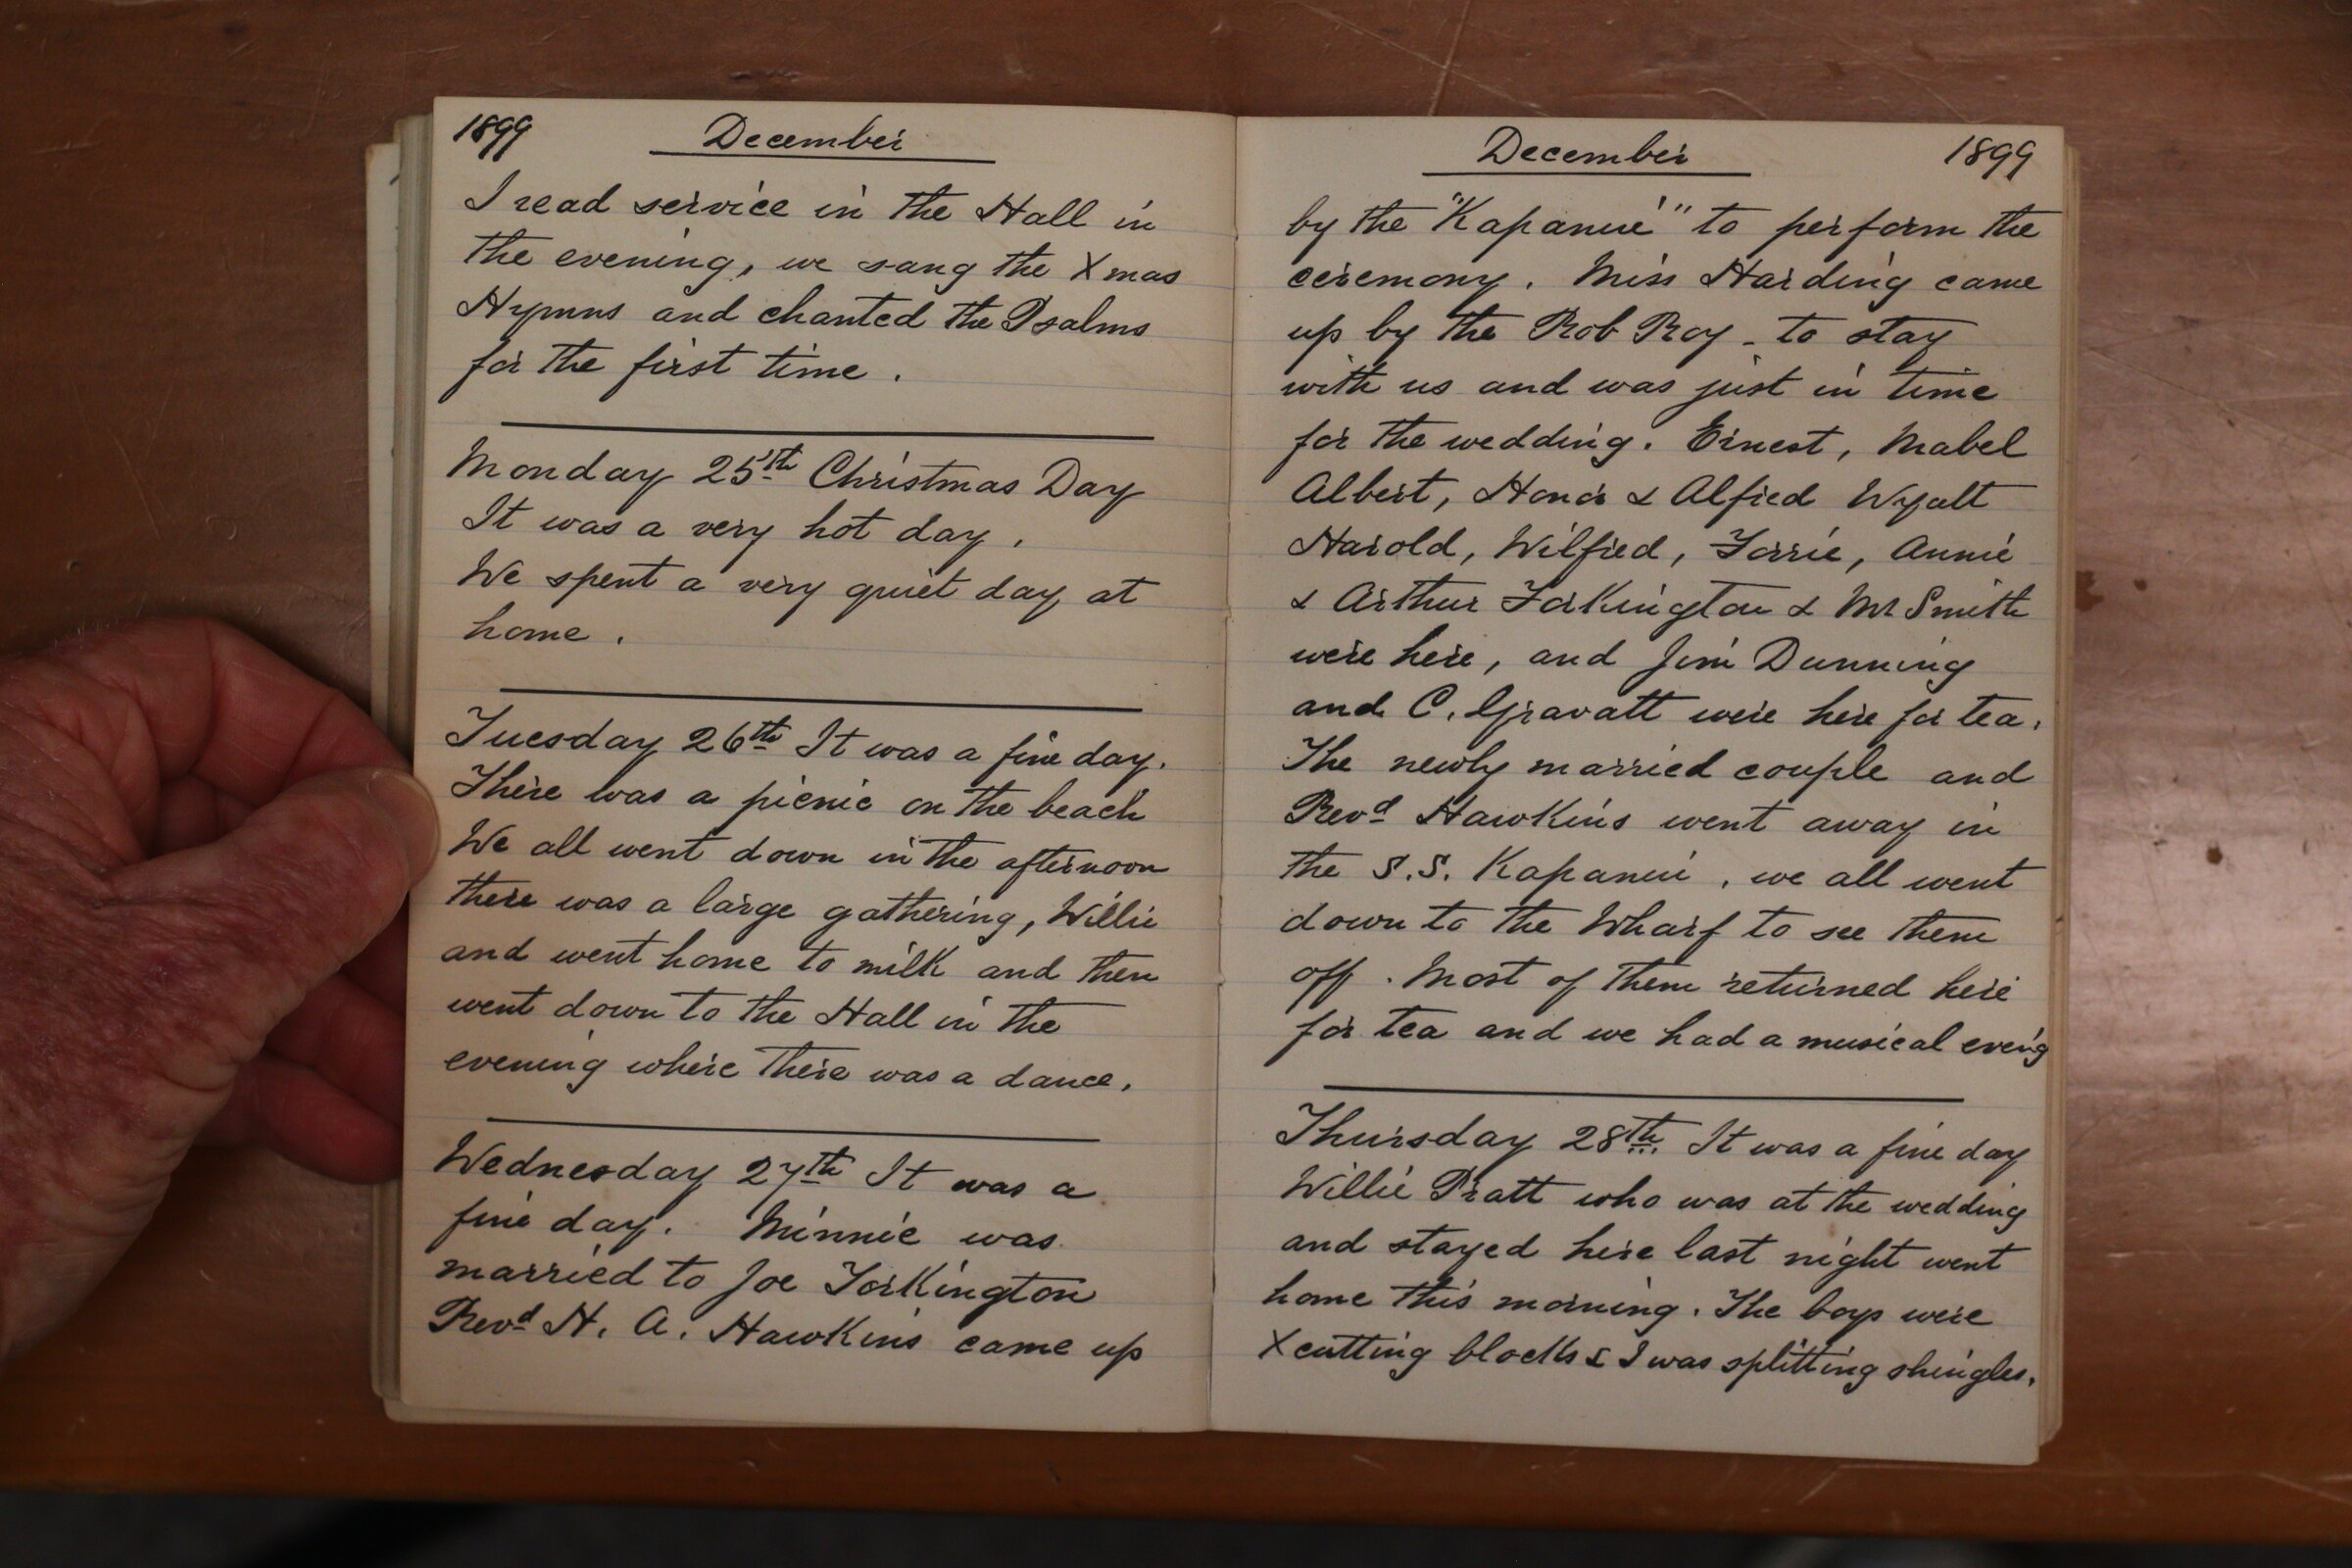 1899 December
I read service in the Hall in
the evening, we sang the Xmas
Hymns and chanted the Psalms
for the first time.
Monday 25th Christmas Day
It was a very hot day.
We spent a very quiet day at
home.
Tuesday 26th It was a fine day.
There was a picnic on the beach
We all went down in the afternoon
there was a large gathering, Willie
and went home to milk and then
went down to the Hall in the
evening where there was a dance.
Wednesday 27th It was a
fine day. Minnie was
married to Joe Torkington
Revd H. A. Hawkins came up
December 1899
by the "Kapanui" to perform the
ceremony. Miss Harding came
up by the Rob Roy - to stay
with us and was just in time
for the wedding. Ernest, Mabel
Albert, Honor & Alfred Wyatt
Harold, Wilfred, Torrie, Annie
& Arthur Torkington & Mr Smith
were here, and Jim Dunning
and C. Gravatt were here for tea.
The newly married couple and
Revd Hawkins went away in
the S.S. Kapanui, we all went
down to the Wharf to see them
off. Most of them returned here
for tea and we had a musical eve'g
Thursday 28th. It was a fine day
Willie Pratt who was at the wedding
and stayed here last night went
home this morning. The boys were
Xcutting blocks & I was splitting shingles.